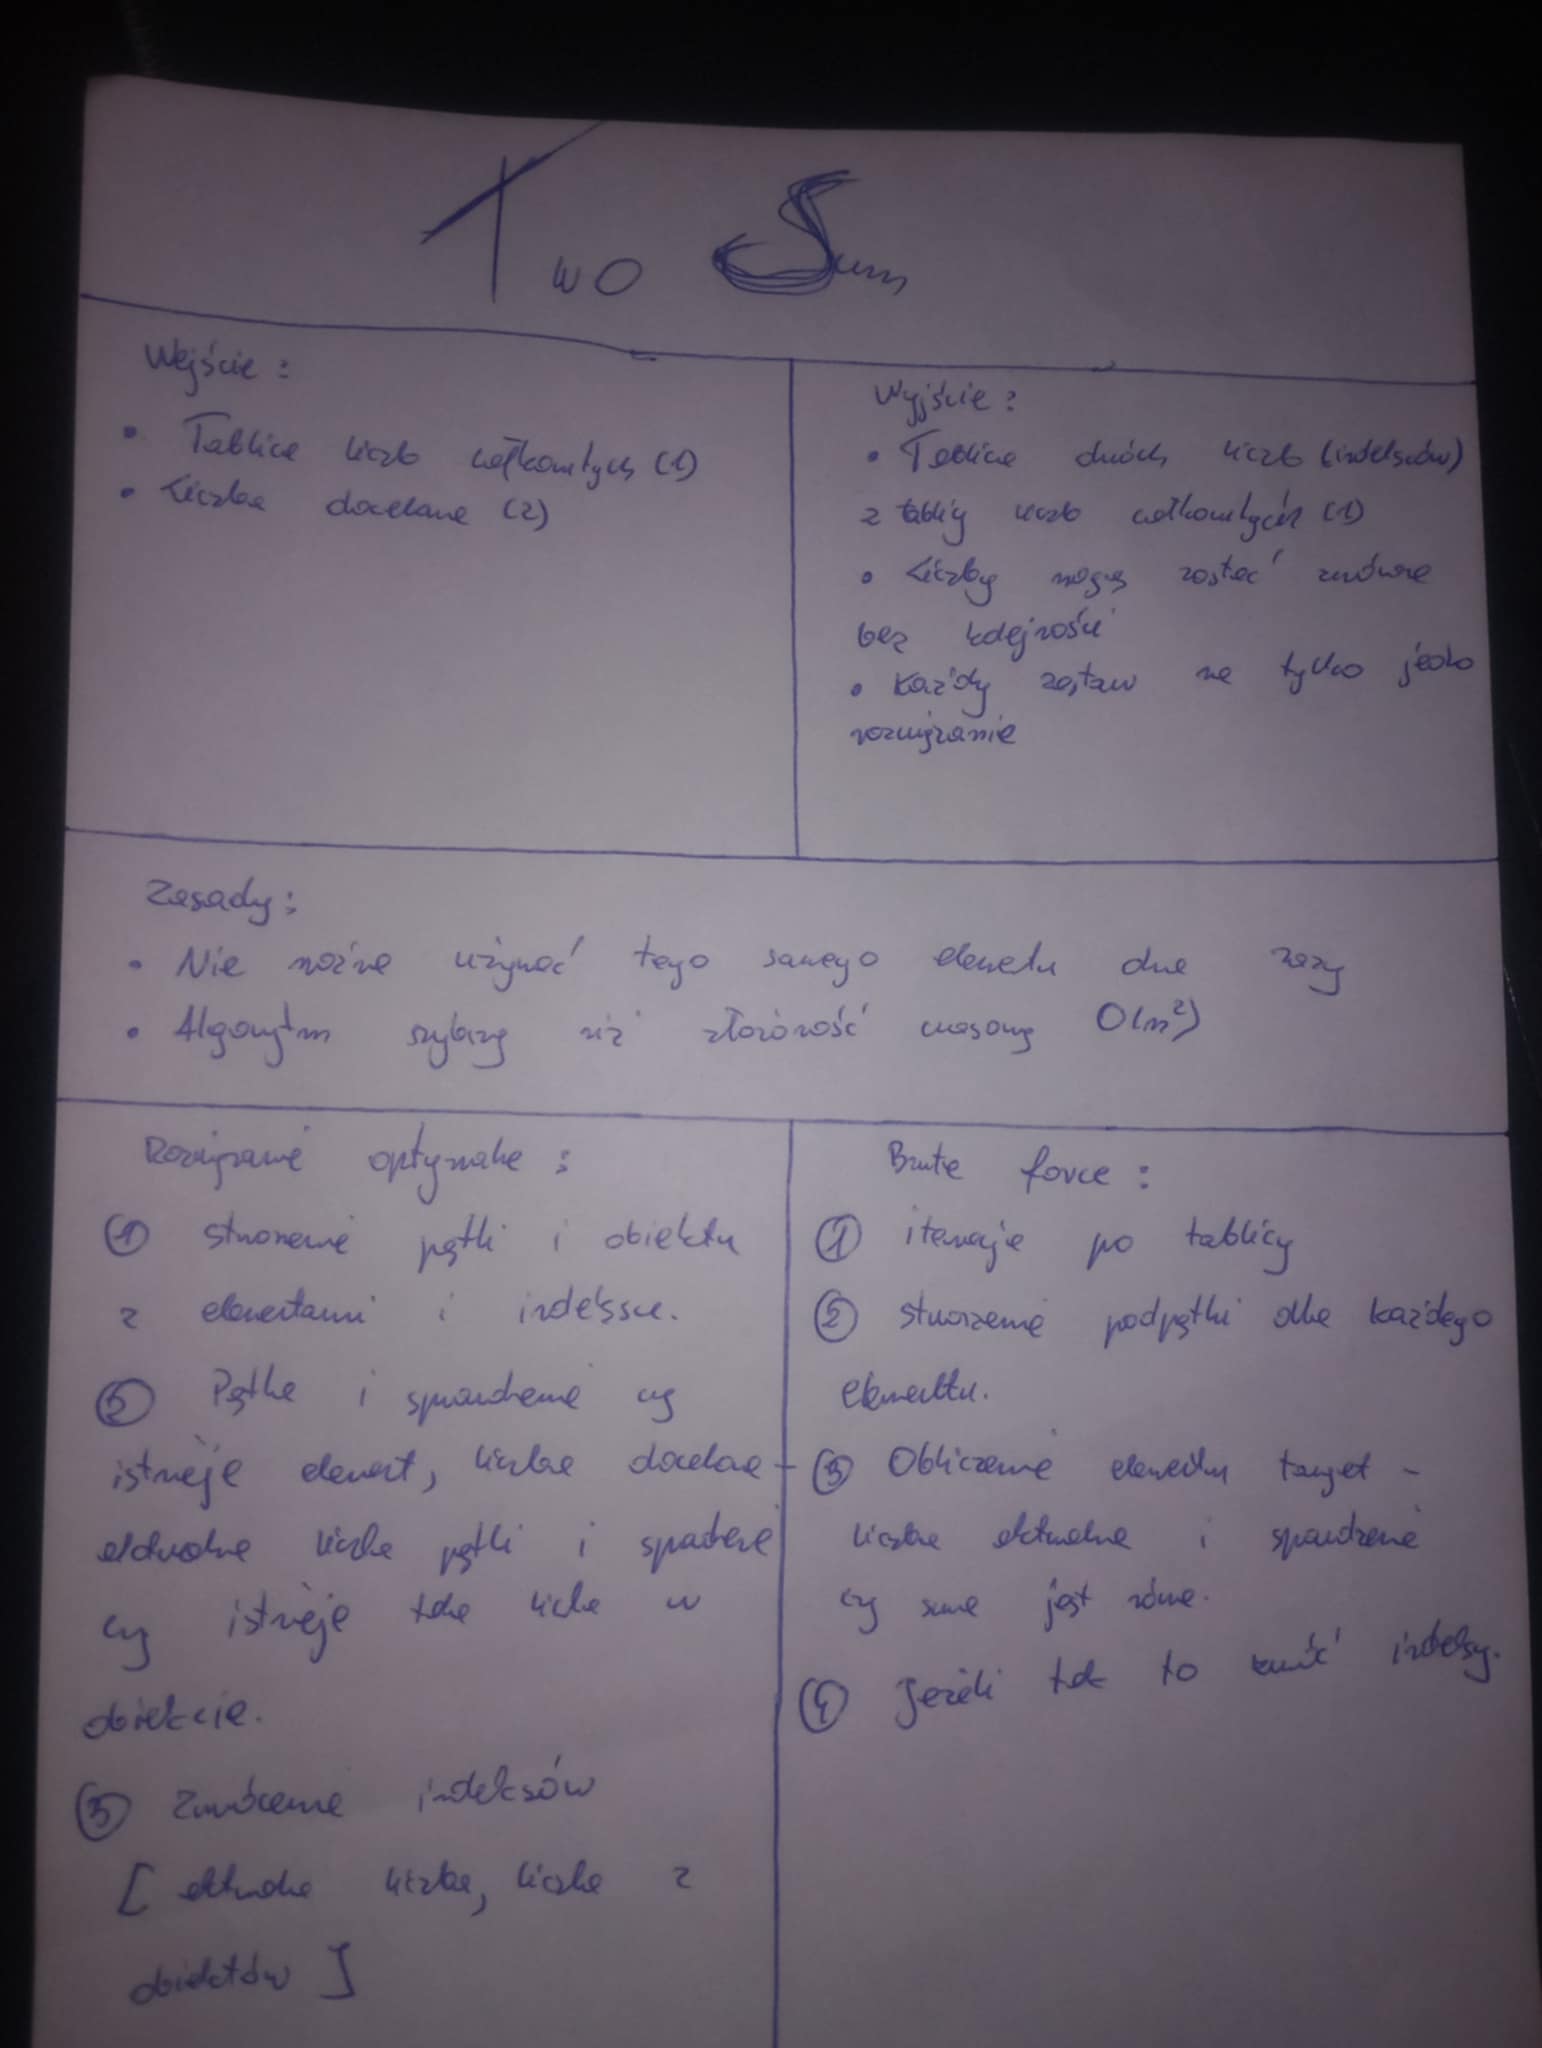 Two Sum
Wejście:
• Tablica liczb całkowitych (1)
• Liczba docelowa (2)
Wyjście:
• Tablica dwóch liczb (indeksów)
z tablicy liczb całkowitych (1)
• Liczby mogą zostać zwrócone
bez kolejności
• Każdy zestaw ma tylko jedno
rozwiązanie
Zasady:
• Nie można używać tego samego elementu dwa razy
• Algorytm szybszy niż złożoność czasowa O(n²)
Rozwiązanie optymalne:
① stworzenie pętli i obiektu
z elementami i indeksem.
② Pętla i sprawdzenie czy
istnieje element, liczba docelowa -
aktualna liczba pętli i
czy istnieje taka liczba w
obiekcie.
③ Zwrócenie indeksów
[aktualna liczba, liczba z
obiektów]
Brute force:
① iteracja po tablicy
② stworzenie podpętli dla każdego
elementu.
③ Obliczenie elementu target -
liczba aktualna i sprawdzenie
czy suma jest równa.
④ Jeżeli tak to zwróć indeksy.